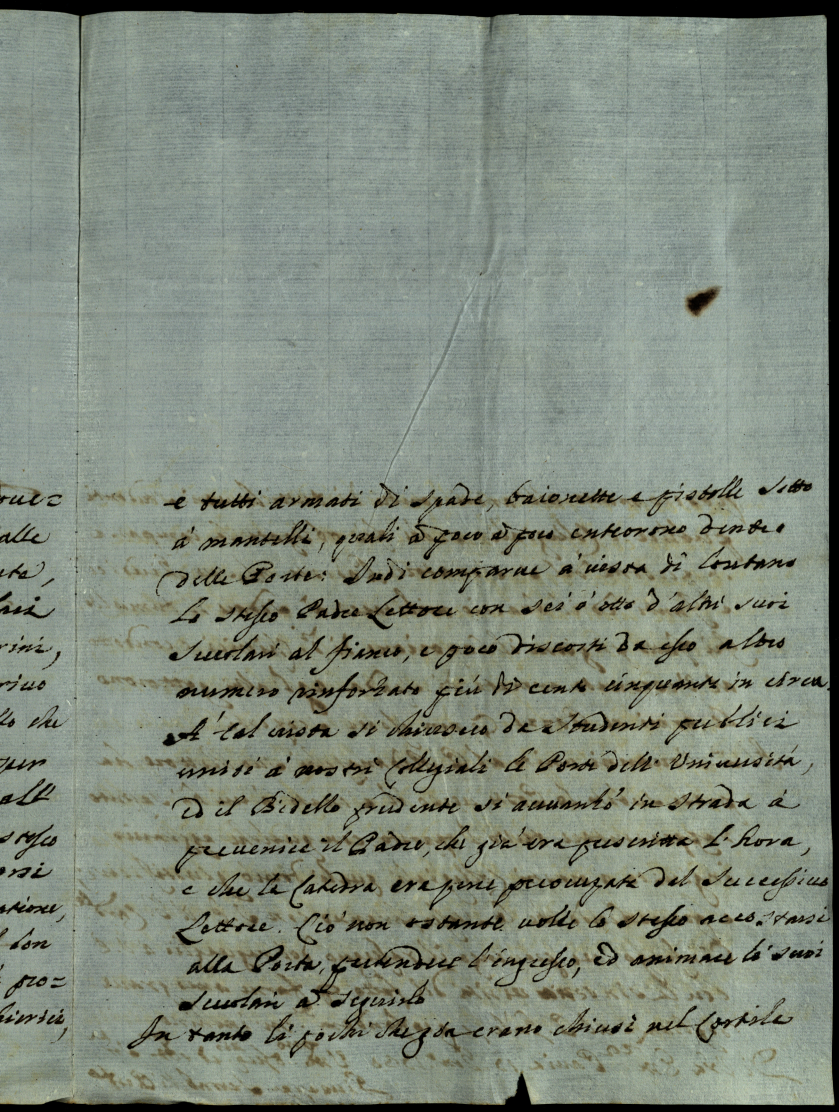 oue=
alle
ete,
rini,
rivo
lo che
per
all'
stesso
orsi
atione,
l don
pro=
e tutti armati di spade, baionette e pistolle sotto
a' mantelli, quali à poco à poco entrorono dentro
delle Porte: Indi comparve à vista di lontano
Lo stesso Padre Lettore con sei ò otto d'altri suoi
Scuolari al fianco, e poco discosti da esso altro
numero rinforzato più di cento cinquanta in circa.
A' tal vista si chiusero da Studenti publici
uniti à nostri Collegiali le Porte dell' Università,
ed il Bidello prudente si avvanzò in strada à
prevenire il Padre, che già era prescritta l' hora,
e che la Catedra era pure preocupata dal Successivo
Lettore. Ciò non ostante volle lo stesso accostarsi
alla Porta, pretendere l'ingresso, ed animare li suoi
Scuolari à seguirlo
In tanto li pochi che già erano chiusi nel Cortile